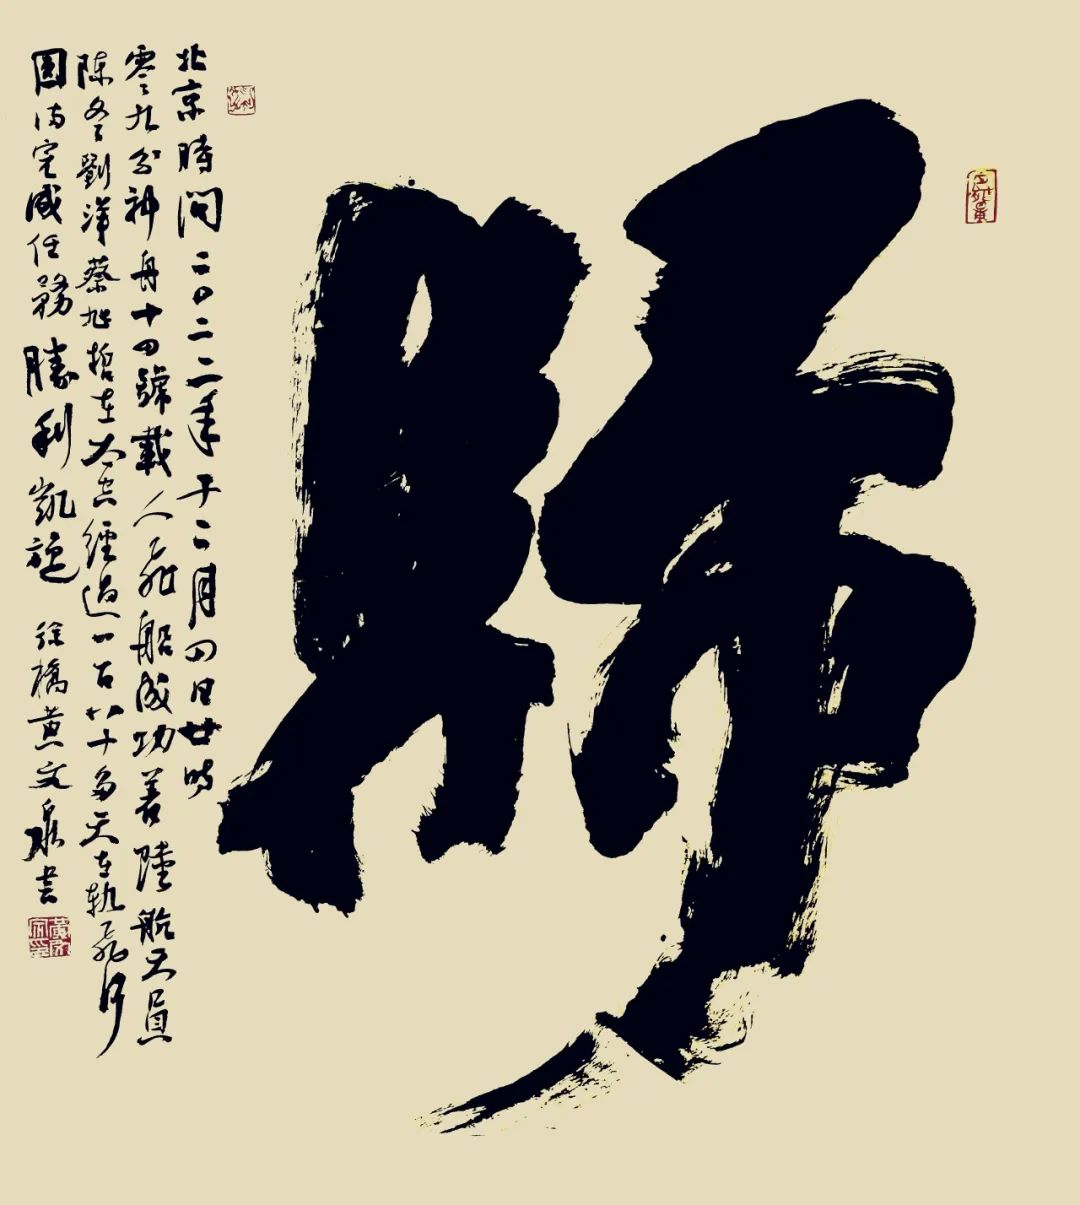 歸
北京時間二〇二二年十二月四日廿時
零九分神舟十四號載人飛船成功着陸航天員
陈冬劉洋蔡旭哲在太空經過一百八十多天在軌飛行
圆满完成任務勝利凱旋 徐橋黄文泉書